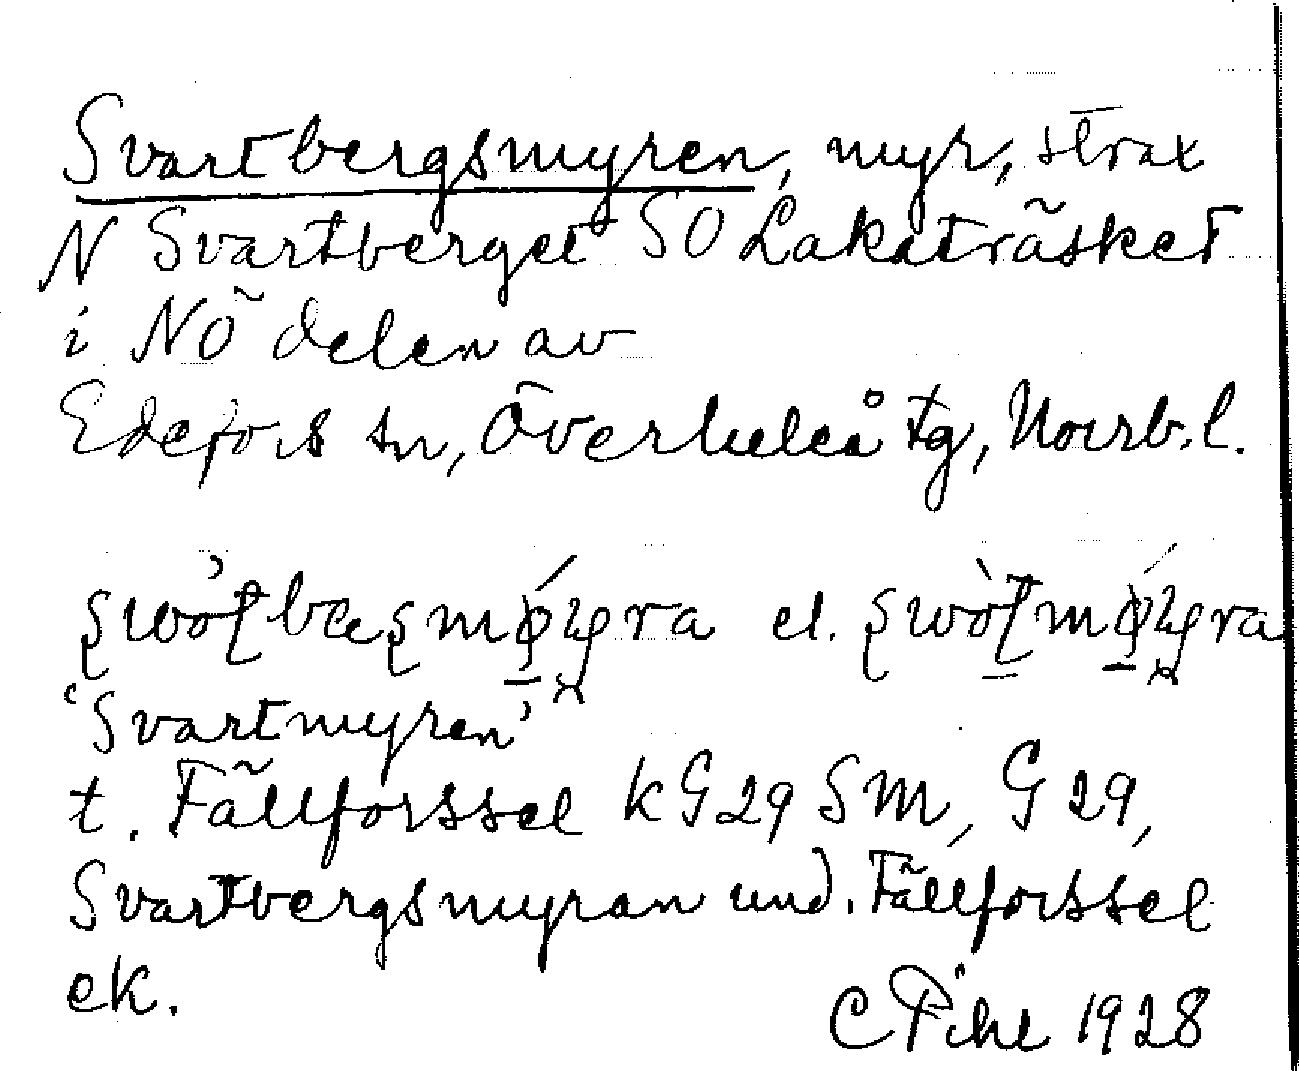 Svartbergsmyren, myr, strax
N Svartberget SO Lakaträsket
i NÖ delen av
Edefors sn, Överluleå tg, Norrb. l.
el.
'Svartmyren'
t. Fällforssel kG29 SM, G 29,
Svartbergsmyran und. Fällforssel
ek.
C Pihl 1928